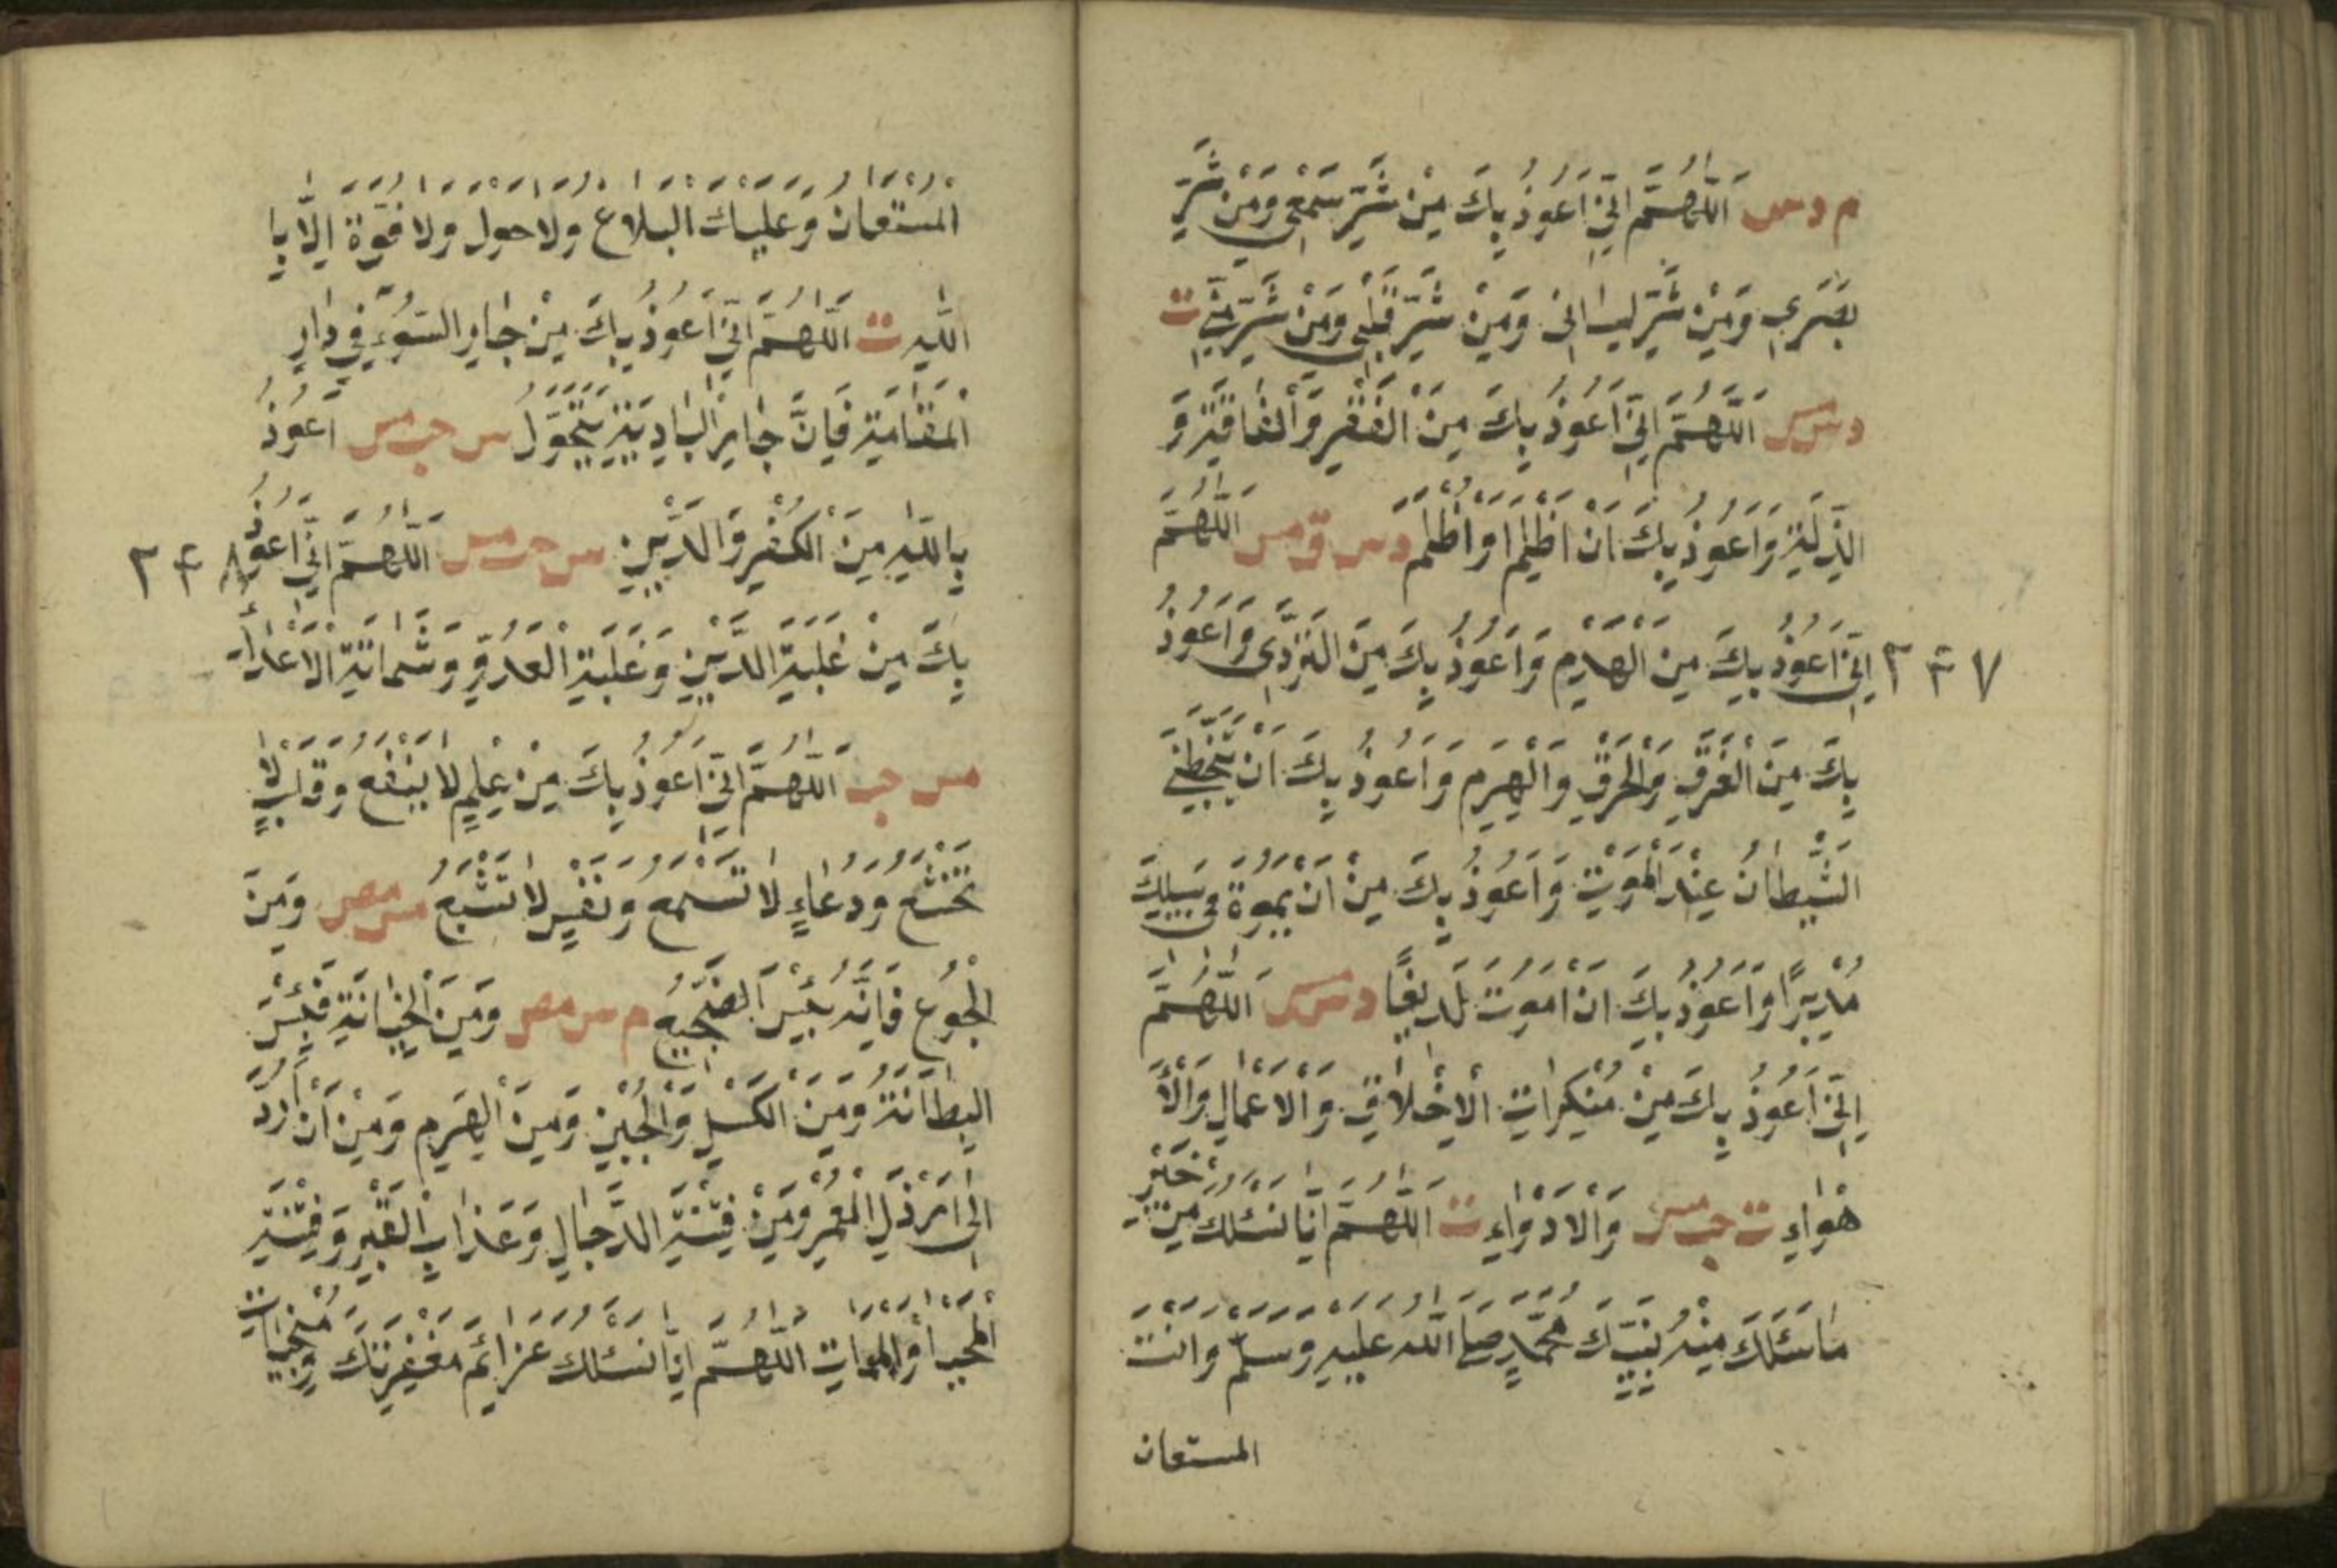 م د مس اَللّٰهُمَّ اِنّٖى اَعُوذُ بِكَ مِنْ شَرِّ سَمْعٖى وَمِنْ شَرِّ
بَصَرٖى وَمِنْ شَرِّ لِسَانٖى وَمِنْ شَرِّ قَلْبٖى وَمِنْ شَرِّ مَنِيّٖى ت
د س مس اَللّٰهُمَّ اِنّٖى اَعُوذُ بِكَ مِنَ الْفَقْرِ وَالْفَاقَةِ وَ
الذِّلَّةِ وَاَعُوذُ بِكَ اَنْ اَظْلِمَ اَوْ اُظْلَمَ د س ق مس اَللّٰهُمَّ
اِنّٖى اَعُوذُ بِكَ مِنَ الْهَدْمِ وَاَعُوذُ بِكَ مِنَ التَّرَدّٖى وَاَعُوذُ
٢٤٧
بِكَ مِنَ الْغَرَقِ وَالْحَرَقِ وَالْهَرَمِ وَاَعُوذُ بِكَ اَنْ يَتَخَبَّطَنِىَ
الشَّيْطَانُ عِنْدَ الْمَوْتِ وَاَعُوذُ بِكَ مِنْ اَنْ يَمُوتَ فٖى سَبٖيلِكَ
مُدْبِرًا وَاَعُوذُ بِكَ اَنْ اَمُوتَ لَدٖيغًا د س مس اَللّٰهُمَّ
اِنّٖى اَعُوذُ بِكَ مِنْ مُنْكَرَاتِ الْاَخْلَاقِ وَالْاَعْمَالِ وَالْاَ
هْوَاءِ ت حب مس وَالْاَدْوَاءِ ت اَللّٰهُمَّ اِنَّا نَسْئَلُكَ مِنْ خَيْرِ
مَا سَئَلَكَ مِنْهُ نَبِيُّكَ مُحَمَّدٌ صَلَّى اللّٰهُ عَلَيْهِ وَسَلَّمَ وَاَنْتَ
المستعان
الْمُسْتَعَانُ وَعَلَيْكَ الْبَلَاغُ وَلَا حَوْلَ وَلَا قُوَّةَ اِلَّا بِا
للّٰهِ ت اَللّٰهُمَّ اِنّٖى اَعُوذُ بِكَ مِنْ جَارِ السُّوءِ فٖى دَارِ
الْمُقَامَةِ فَاِنَّ جَارَ الْبَادِيَةِ يَتَحَوَّلُ س حب مس اَعُوذُ
بِاللّٰهِ مِنَ الْكُفْرِ وَالدَّيْنِ س حب مس اَللّٰهُمَّ اِنّٖى اَعُوذُ
٢٤٨
بِكَ مِنْ غَلَبَةِ الدَّيْنِ وَغَلَبَةِ الْعَدُوِّ وَشَمَاتَةِ الْاَعْدَاءِ
مس حب اَللّٰهُمَّ اِنّٖى اَعُوذُ بِكَ مِنْ عِلْمٍ لَا يَنْفَعُ وَقَلْبٍ لَا
تَخْشَعُ وَدُعَاءٍ لَا تُسْمَعُ وَنَفْسٍ لَا تَشْبَعُ مس مص وَمِنَ
الْجُوعِ فَاِنَّهُ بِئْسَ الضَّجٖيعُ م س مص وَمِنَ الْخِيَانَةِ فَبِئْسَ
الْبِطَانَةُ وَمِنَ الْكَسَلِ وَالْجُبْنِ وَمِنَ الْهَرَمِ وَمِنْ اَنْ اُرَدَّ
اِلٰى اَرْذَلِ الْعُمُرِ وَمِنْ فِتْنَةِ الدَّجَّالِ وَعَذَابِ الْقَبْرِ وَفِتْنَةِ
الْمَحْيَا وَالْمَمَاتِ اَللّٰهُمَّ اِنَّا نَسْئَلُكَ عَزَائِمَ مَغْفِرَتِكَ وَمُنْجِيَاتِ